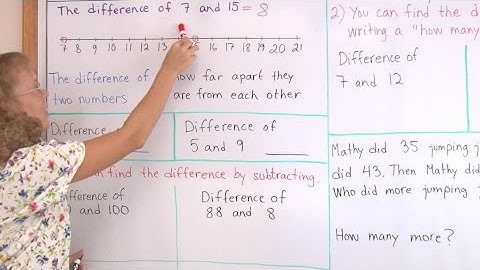 The difference of 7 and 15 = 8
7 8 9 10 11 12 13 15 16 17 18 19 20 21
The difference of how far apart they
two numbers are from each other
Difference
Difference of
5 and 9
find the difference by subtracting
Difference of
and 100
Difference of
88 and 8
2) You can find the d
writing a "how many
Difference of
7 and 12
Mathy did 35 jumping j
did 43. Then Mathy did
Who did more jumping
How many more?